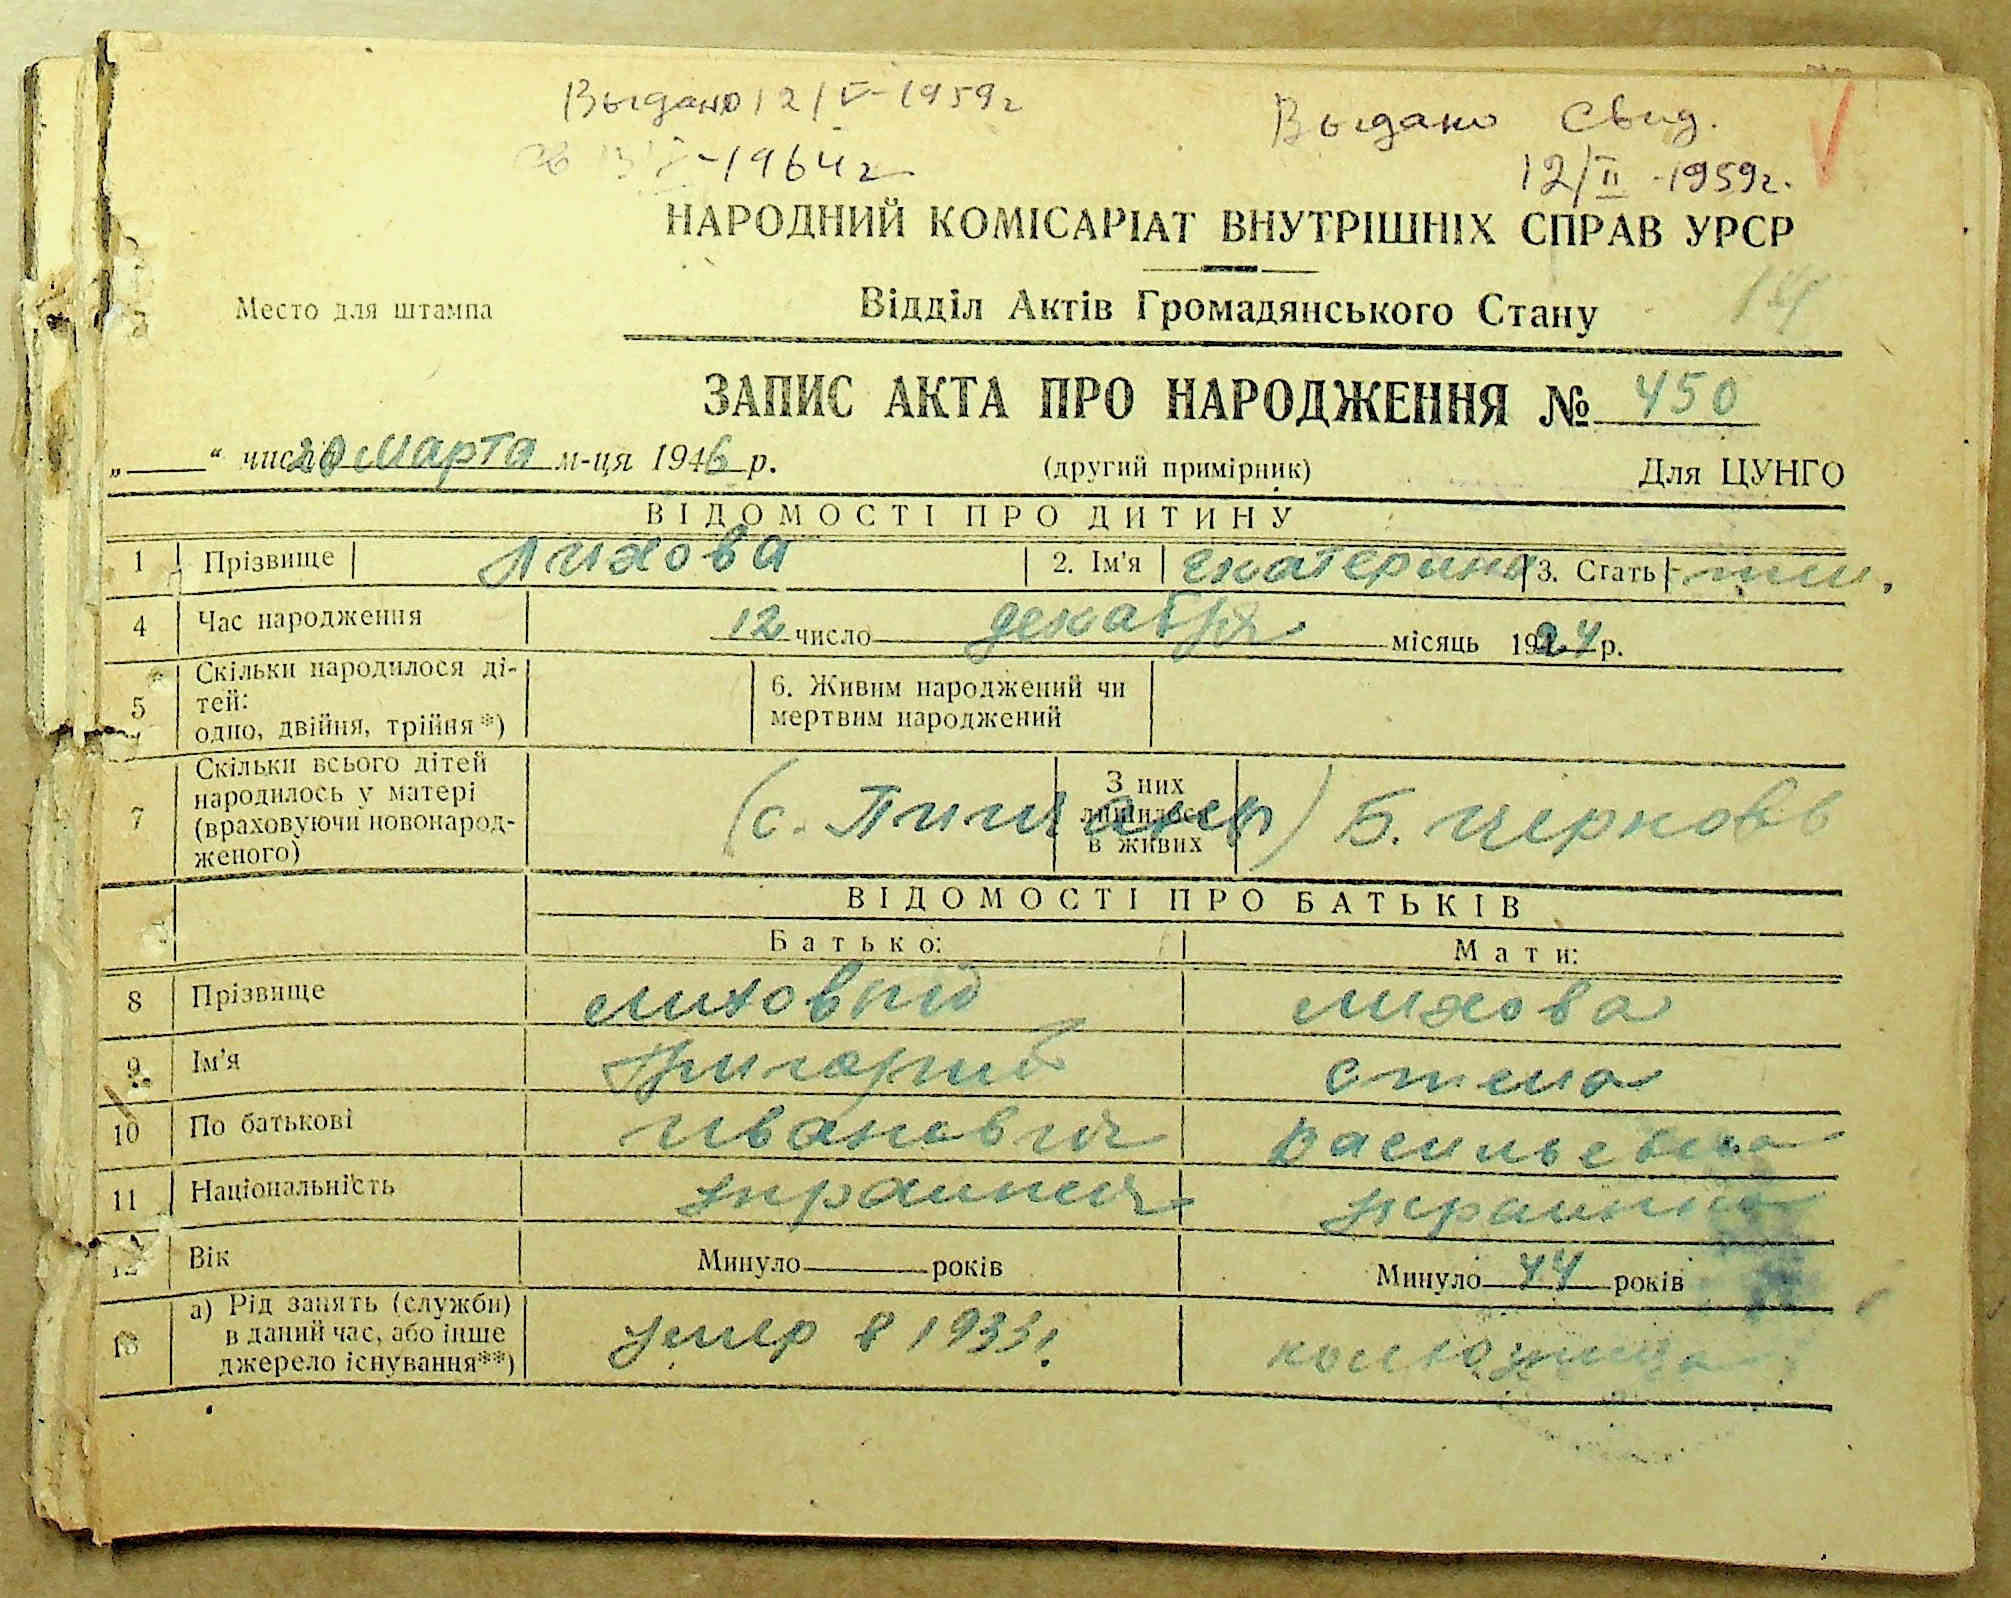 Выдано 12/V-1959г
-1964г
Выдано свид.
12/II -1959г.
НАРОДНИЙ КОМІСАРІАТ ВНУТРІШНІХ СПРАВ УРСР
Место для штампа
Відділ Актів Громадянського Стану
ЗАПИС АКТА ПРО НАРОДЖЕННЯ № 450
„ “ числа 20 Марта м-ця 1946 р.
(другий примірник)
Для ЦУНГО
ВІДОМОСТІ ПРО ДИТИНУ
1 Прізвище Лихова 2. Ім'я Екатерина 3. Стать
4 Час народження 12 число декабря місяць 1924 р.
5 Скільки народилося ді-
тей:
одно, двійня, трійня*)
6. Живим народжений чи
мертвим народжений
7 Скільки всього дітей
народилось у матері
(враховуючи новонарод-
женого)
З них
лишилося
в живих
(с. ) Б.
ВІДОМОСТІ ПРО БАТЬКІВ
Батько: Мати:
8 Прізвище Лиховий Лихова
9 Ім'я Григорий
10 По батькові Иванович Васильевна
11 Національність украинец украинка
12 Вік Минуло років Минуло 44 років
13 а) Рід занять (служби)
в даний час, або інше
джерело існування**)
умер в 1933г. колхозница